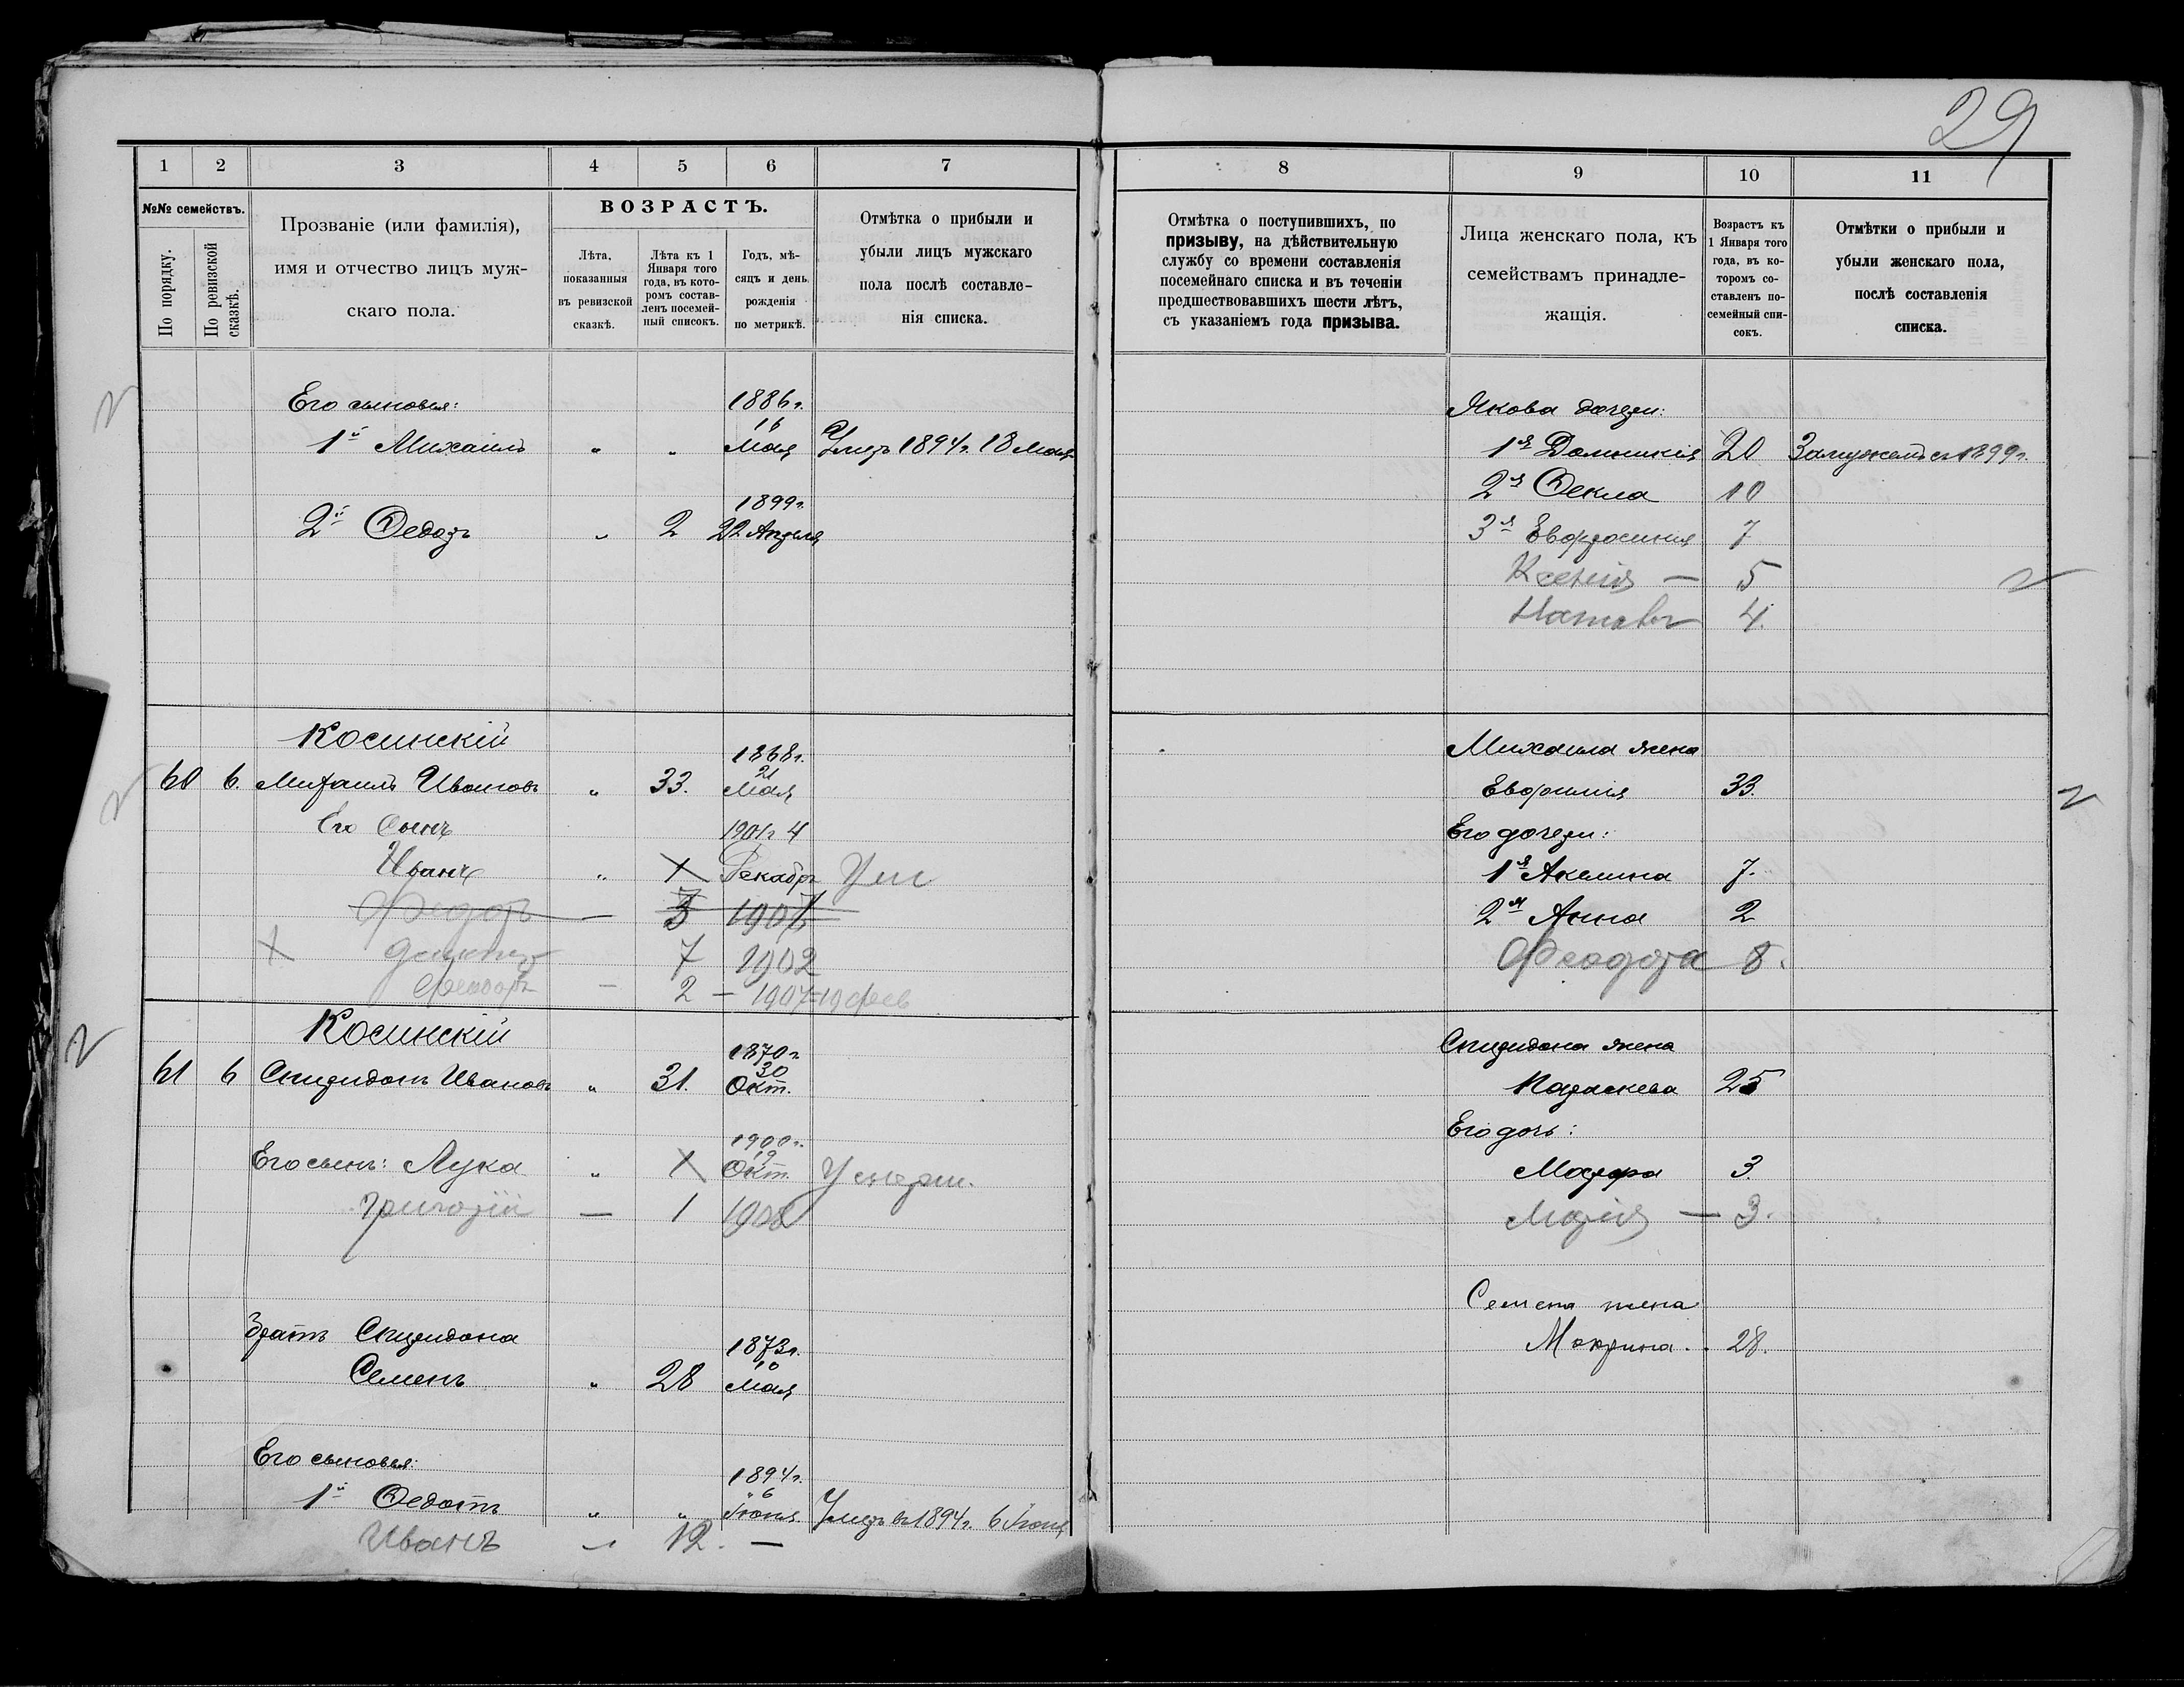 29
1 2 3 4 5 6 7
№№ семействъ.
По порядку.
По ревизской сказкѣ.
Прозваніе (или фамилія),
имя и отчество лицъ муж-
скаго пола.
ВОЗРАСТЪ.
Лѣта,
показанныя
въ ревизской
сказкѣ.
Лѣта къ 1
Января того
года, въ кото-
ромъ состав-
ленъ посемей-
ный списокъ.
Годъ, мѣ-
сяцъ и день
рожденія
по метрикѣ.
Отмѣтка о прибыли и
убыли лицъ мужскаго
пола послѣ составле-
нія списка.
Его сыновья: 1886 г.
16
1й Михаилъ " " Мая Умеръ 1894 г. 18 Мая
1899 г.
2й Ѳедоръ " 2 22 Апреля
Косинскій 1868 г.
21
60 6. Михаилъ Ивановъ " 33. Мая
Его Сынъ 1901 г 4
Иванъ " Декабр Ум
Федоръ — 3 1907
7 1902
Феодоръ — 2 — 1907=19 фев
Косинскій 1870 г
30
61 6 Спиридонъ Ивановъ " 31. Окт.
1900 г.
19
Его сынъ: Лука " Окт. Умерш.
Григорій — 1 1908
Братъ Спиридона 1873 г.
10
Семенъ " 28 Мая
Его сыновья: 1894 г.
6
1й Ѳедотъ " " Іюня Умеръ въ 1894 г. 6 Іюня
Иванъ " 12. —
8 9 10 11
Отмѣтка о поступившихъ, по
призыву, на дѣйствительную
службу со времени составленія
посемейнаго списка и въ теченіи
предшествовавшихъ шести лѣтъ,
съ указаніемъ года призыва.
Лица женскаго пола, къ
семействамъ принадле-
жащія.
Возрастъ къ
1 Января того
года, въ ко-
торомъ со-
ставленъ по-
семейный спи-
сокъ.
Отмѣтки о прибыли и
убыли женскаго пола,
послѣ составленія
списка.
Якова дочери:
1я Домникія 20 Замужемъ съ 1899 г.
2я Ѳекла 10
3я Евфросинія 7
Ксенія — 5
4.
Михаила жена
Евфимія 33.
Его дочери:
1я Акелина 7.
2я Анна 2
Феодора 8.
Спиридона жена
Параскева 25
Его дочь:
Марфа 3.
Марія — 3.
Семена жена
Мокрина. 28.